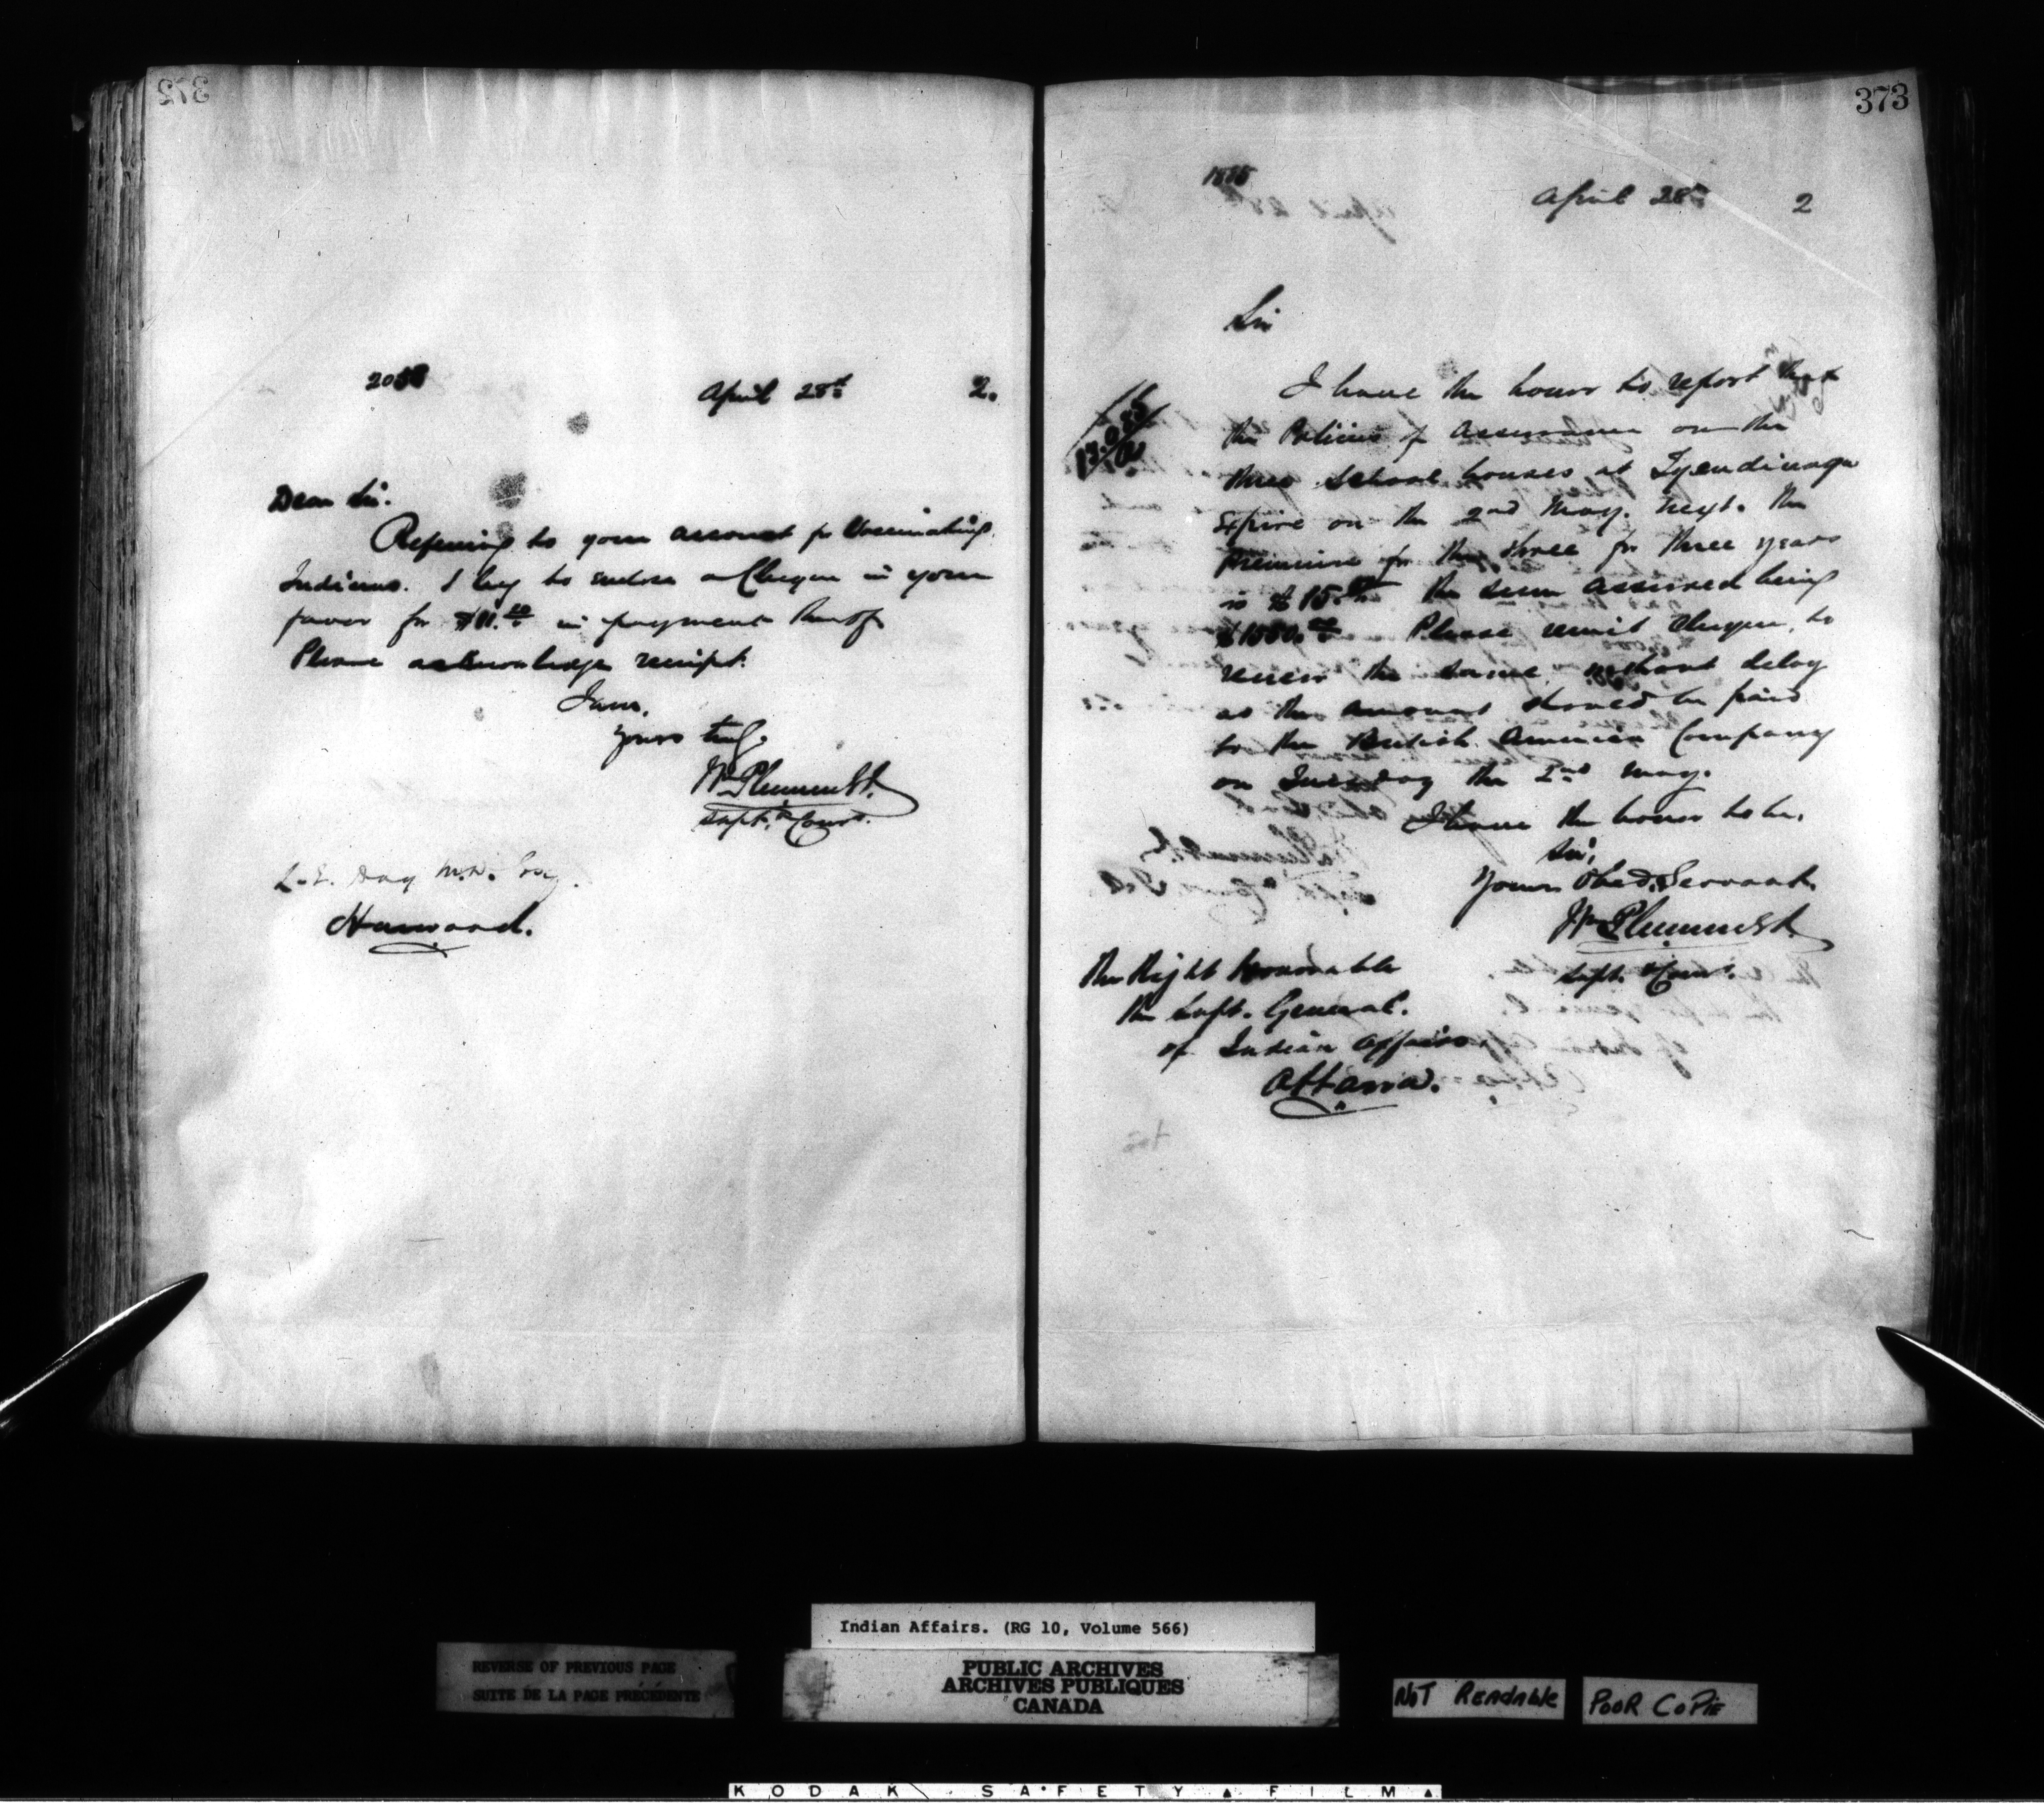 372
April 28th 2.
Dear Sir.
Referring to your account for Vaccinating
Indians. I beg to enclose a Cheque in your
favor for $11.10 in payment thereof
Please acknowledge receipt.
I am,
Yours truly.
Wm Plummer
Supt. & Comr.
L. E. Day M.D. Esq.
Harwood.
373
April 28th 2
Sir
I have the honor to report that
the Policies of Assurance on the
three School houses at Tyendinaga
Expire on the 2nd May. next. The
premium for the three for three years
is $15. the sum assured being
Please remit Cheque, to
renew the same, without delay
as the amount should be paid
to the British America Company
on Tuesday the 2nd May.
I have the honor to be.
Sir,
Your Obed. Servant.
Wm Plummer
Supt. & Comr.
The Right Honorable
the Supt. General.
of Indian Affairs.
Ottawa.
Indian Affairs. (RG 10, Volume 566)
REVERSE OF PREVIOUS PAGE
SUITE DE LA PAGE PRÉCÉDENTE
PUBLIC ARCHIVES
ARCHIVES PUBLIQUES
CANADA
NOT READABLE
POOR COPIE
KODAK SAFETY FILM